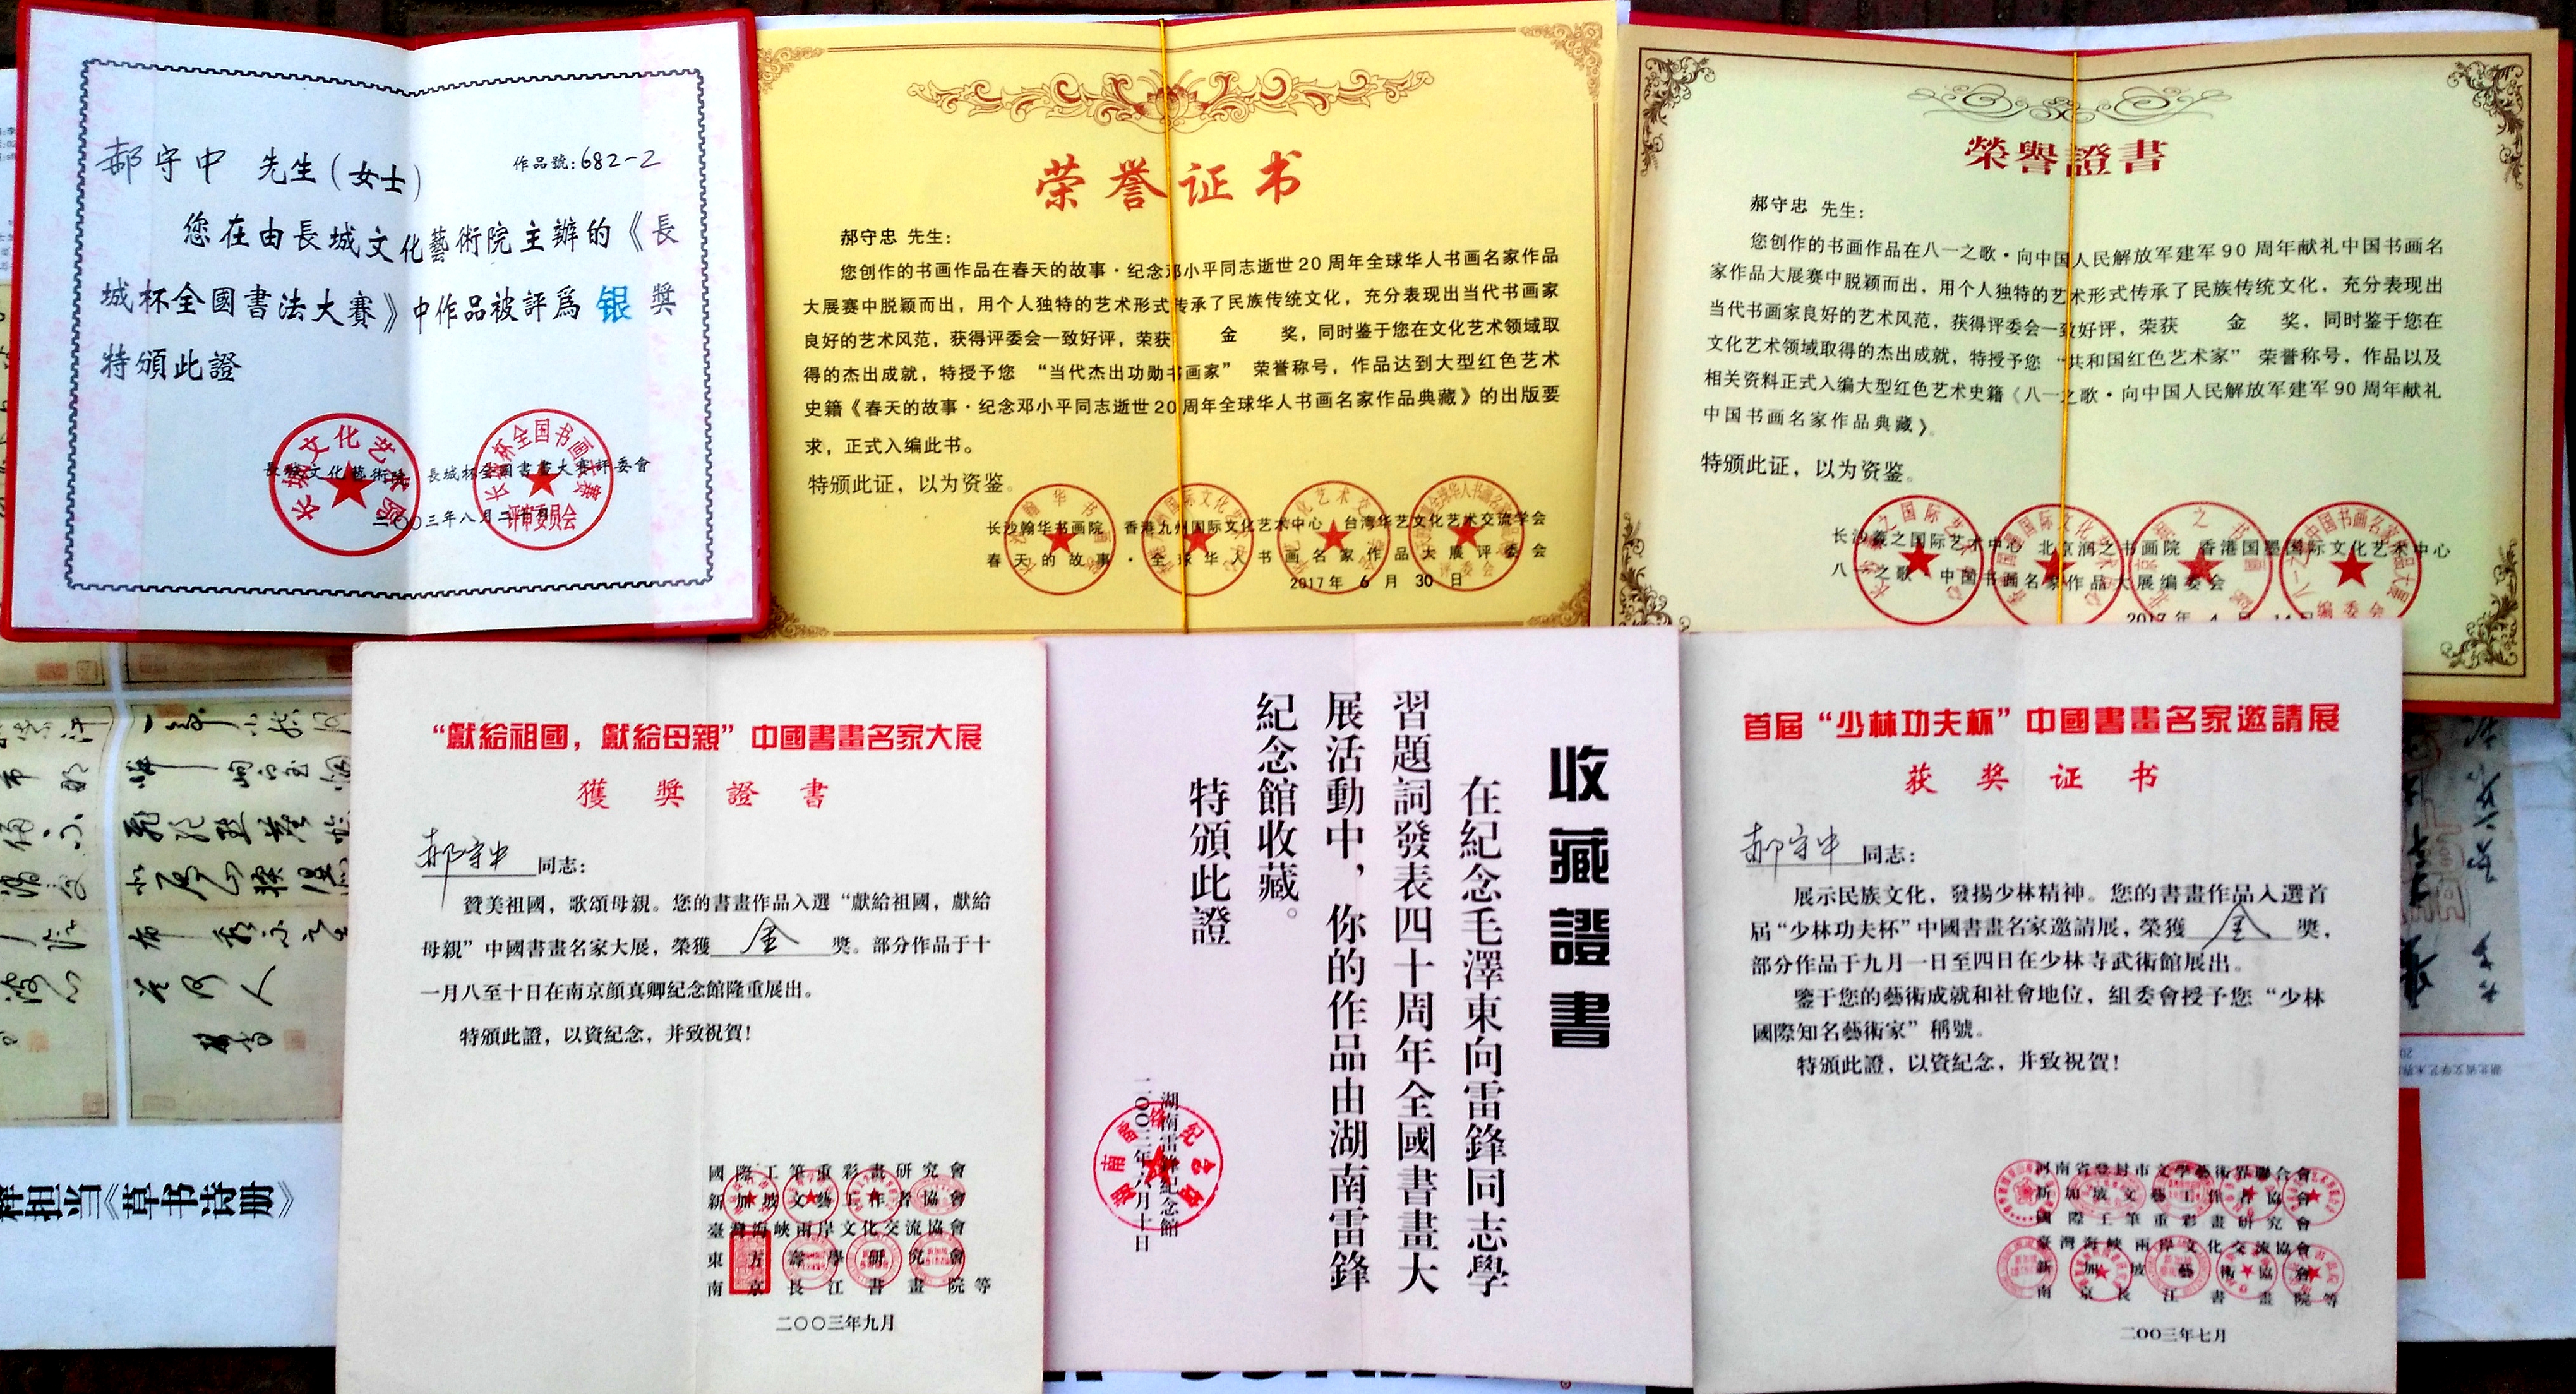 郝守中 先生(女士)
作品號:682-2
您在由長城文化藝術院主辦的《長
城杯全國書法大賽》中作品被評爲 银 獎
特頒此證
長城文化藝術院 長城杯全國書畫大賽評委會
二〇〇三年八月二十日
评审委员会
荣誉证书
郝守忠 先生:
您创作的书画作品在春天的故事·纪念邓小平同志逝世20周年全球华人书画名家作品
大展赛中脱颖而出，用个人独特的艺术形式传承了民族传统文化，充分表现出当代书画家
良好的艺术风范，获得评委会一致好评，荣获 金 奖，同时鉴于您在文化艺术领域取
得的杰出成就，特授予您 “当代杰出功勋书画家” 荣誉称号，作品达到大型红色艺术
史籍《春天的故事·纪念邓小平同志逝世20周年全球华人书画名家作品典藏》的出版要
求，正式入编此书。
特颁此证，以为资鉴。
长沙翰华书画院 香港九州国际文化艺术中心 台湾华艺文化艺术交流学会
春天的故事·全球华人书画名家作品大展评委会
2017年 6 月 30 日
榮譽證書
郝守忠 先生:
您创作的书画作品在八一之歌·向中国人民解放军建军90周年献礼中国书画名
家作品大展赛中脱颖而出，用个人独特的艺术形式传承了民族传统文化，充分表现出
当代书画家良好的艺术风范，获得评委会一致好评，荣获 金 奖，同时鉴于您在
文化艺术领域取得的杰出成就，特授予您 “共和国红色艺术家” 荣誉称号，作品以及
相关资料正式入编大型红色艺术史籍《八一之歌·向中国人民解放军建军90周年献礼
中国书画名家作品典藏》。
特颁此证，以为资鉴。
北京润之书画院 香港国墨国际文化艺术中心
八一之歌·中国书画名家作品大展编委会
2017 年 4 月 14日
“獻給祖國，獻給母親”中國書畫名家大展
獲獎證書
郝守中 同志:
贊美祖國，歌頌母親。您的書畫作品入選“獻給祖國，獻給
母親”中國書畫名家大展，榮獲 金 獎。部分作品于十
一月八至十日在南京顔真卿紀念館隆重展出。
特頒此證，以資紀念，并致祝賀!
國際工筆重彩畫研究會
新加坡文藝工作者協會
臺灣海峽兩岸文化交流協會
東方壽學研究會
南京長江書畫院等
二〇〇三年九月
收藏證書
在紀念毛澤東向雷鋒同志學
習題詞發表四十周年全國書畫大
展活動中，你的作品由湖南雷鋒
紀念館收藏。
特頒此證
湖南雷鋒紀念館
二〇〇三年六月十日
首屆“少林功夫杯”中國書畫名家邀請展
获奖证书
郝守中 同志:
展示民族文化，發揚少林精神。您的書畫作品入選首
屆“少林功夫杯”中國書畫名家邀請展，榮獲 金 獎，
部分作品于九月一日至四日在少林寺武術館展出。
鑒于您的藝術成就和社會地位，組委會授予您“少林
國際知名藝術家”稱號。
特頒此證，以資紀念，并致祝賀!
河南省登封市文學藝術界聯合會
新加坡文藝工作者協會
國際工筆重彩畫研究會
臺灣海峽兩岸文化交流協會
新加坡藝術協會
南京長江書畫院等
二〇〇三年七月